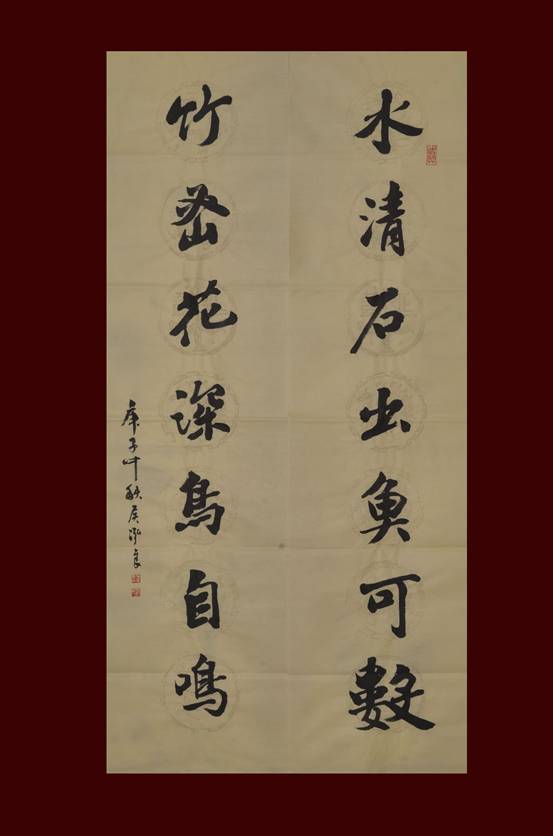 水清石出魚可數
竹密花深鳥自鳴
庚子